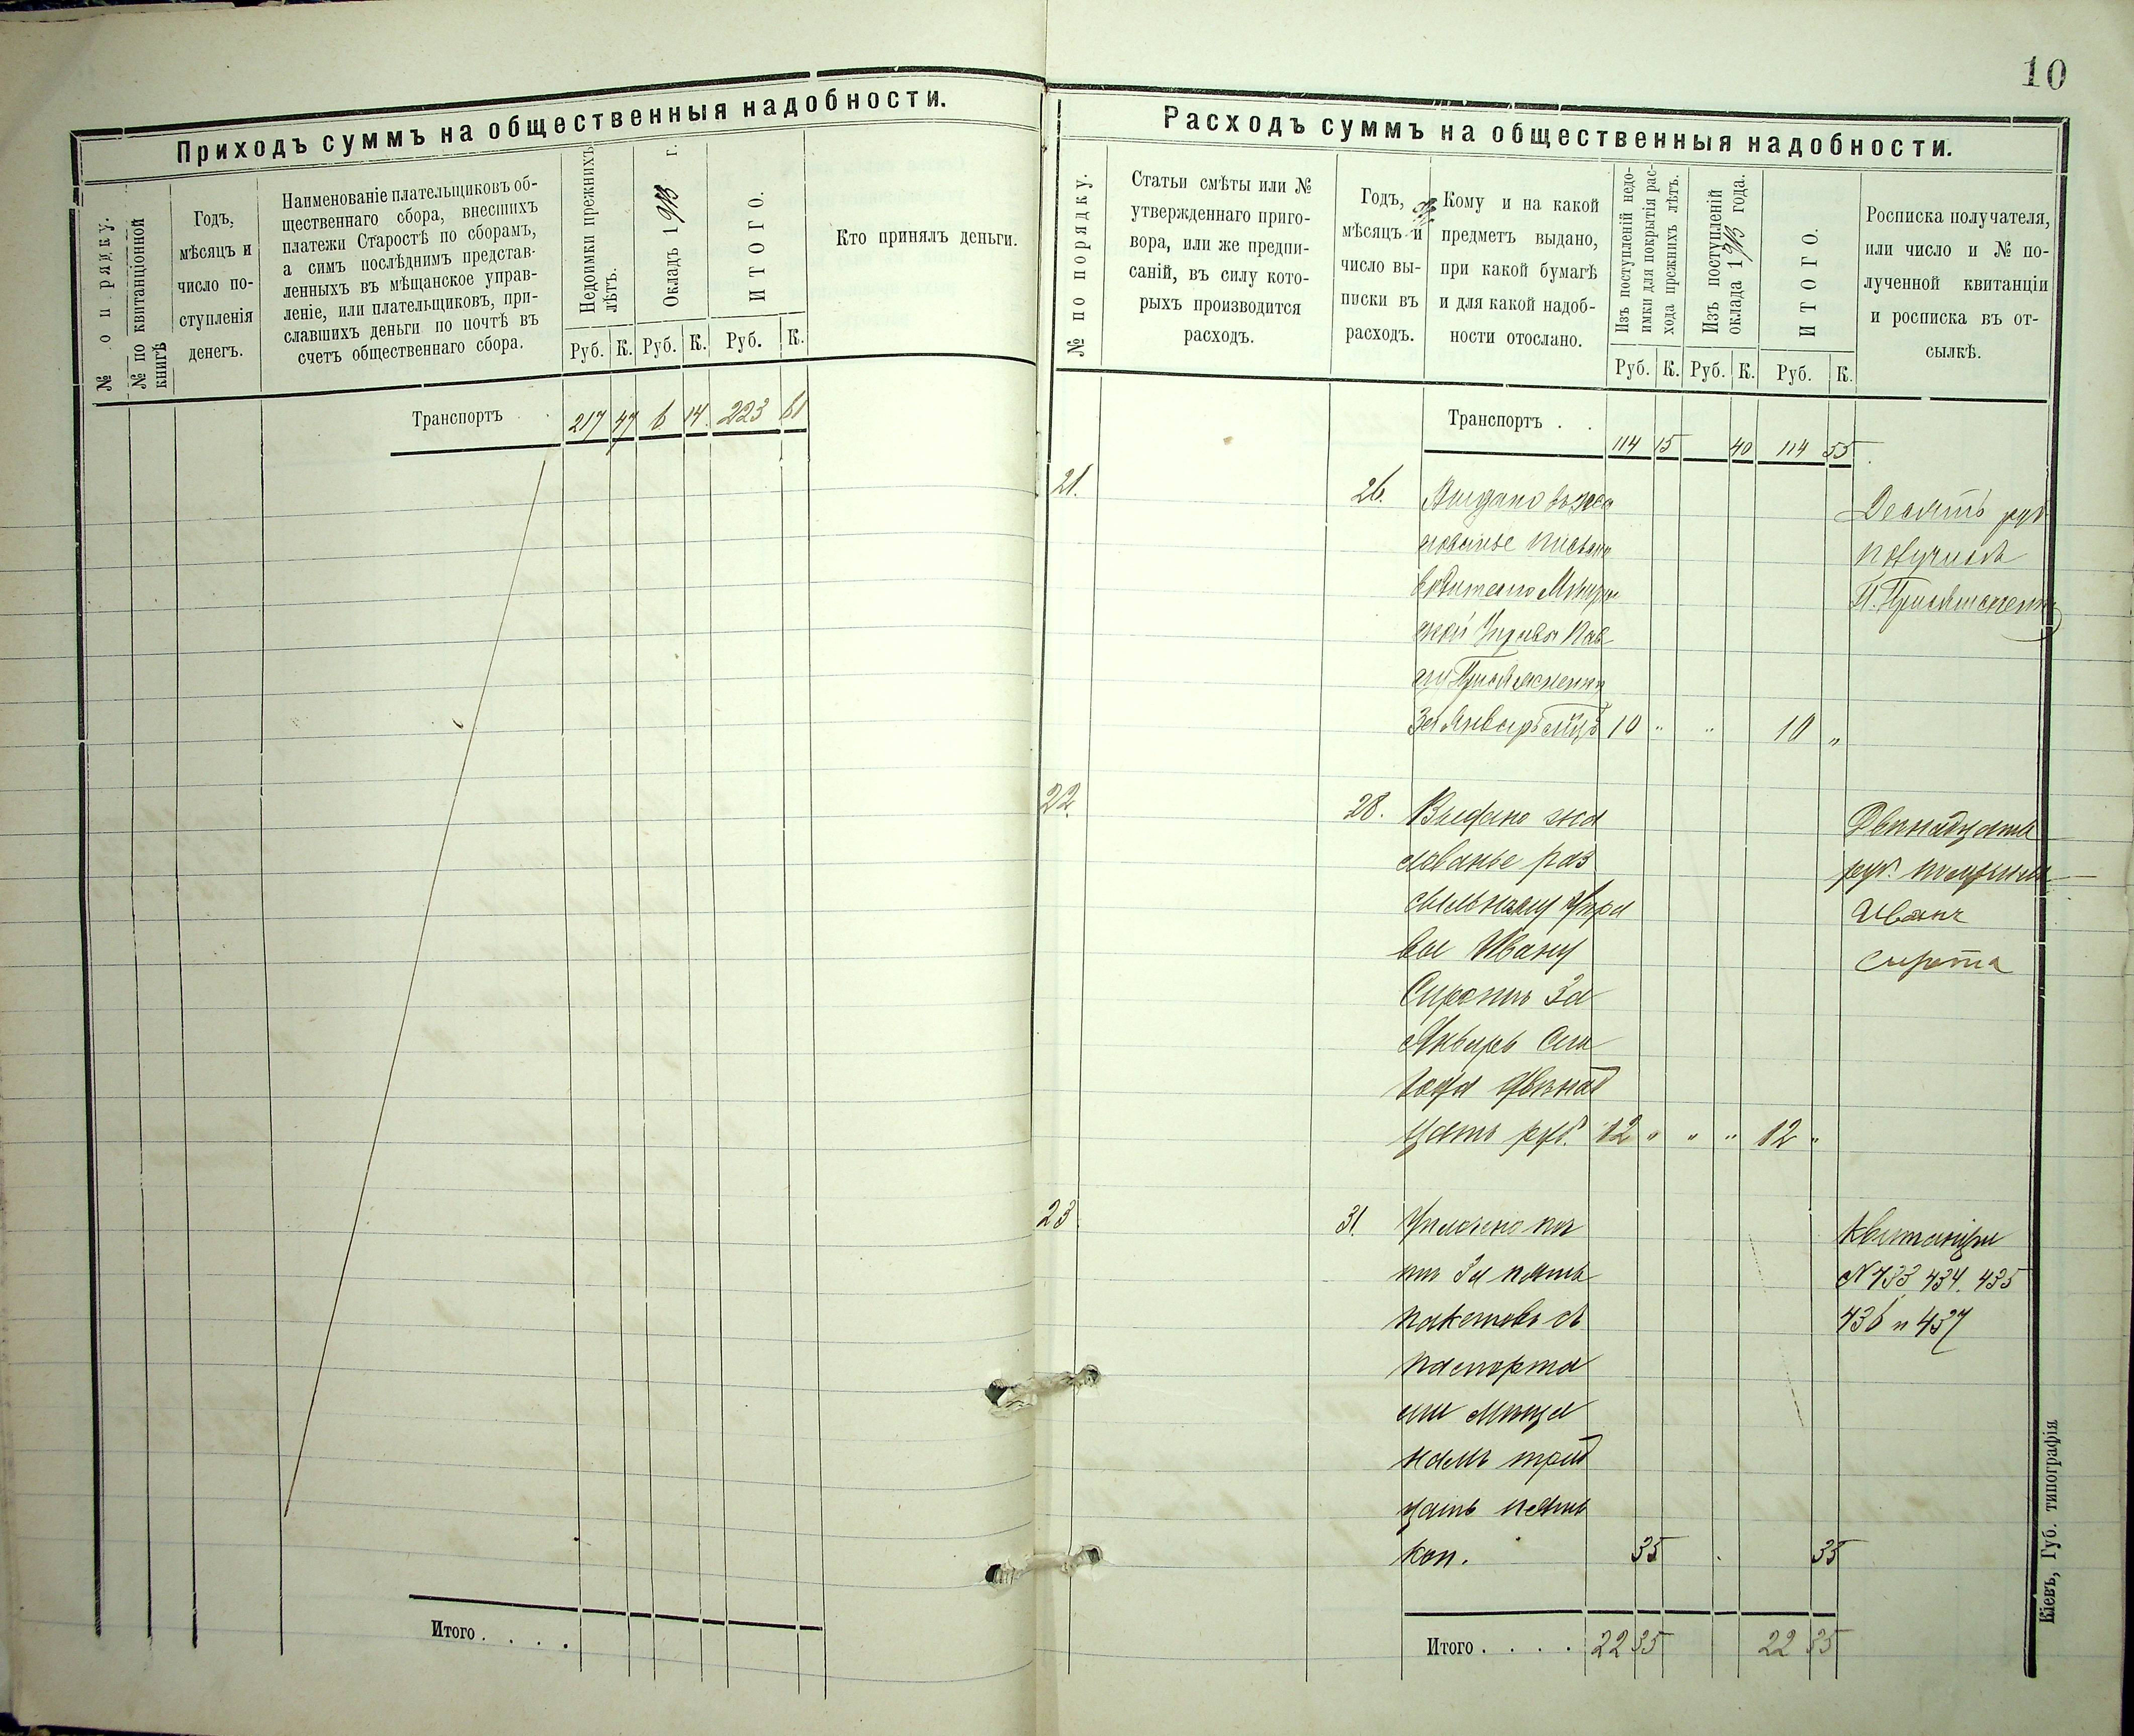 10
Приходъ суммъ на общественныя надобности.
№ по рядку.
№ по квитанціонной
книгѣ
Годъ,
мѣсяцъ и
число по-
ступленія
денегъ.
Наименованіе плательщиковъ об-
щественнаго сбора, внесшихъ
платежи Старостѣ по сборамъ,
а симъ послѣднимъ представ-
ленныхъ въ мѣщанское управ-
леніе, или плательщиковъ, при-
славшихъ деньги по почтѣ въ
счетъ общественнаго сбора.
Недоимки прежнихъ
лѣтъ.
Окладъ 1913 г.
ИТОГО.
Руб. К. Руб. К. Руб. К.
Кто принялъ деньги.
Транспортъ 217 47 6 14 223 61
Итого . . . .
Расходъ суммъ на общественныя надобности.
№ по порядку.
Статьи смѣты или №
утвержденнаго приго-
вора, или же предпи-
саній, въ силу кото-
рыхъ производится
расходъ.
Годъ,
мѣсяцъ и
число вы-
писки въ
расходъ.
Кому и на какой
предметъ выдано,
при какой бумагѣ
и для какой надоб-
ности отослано.
Изъ поступленій недо-
имки для покрытія рас-
хода прежнихъ лѣтъ.
Изъ поступленій
оклада 1913 года.
ИТОГО.
Руб. К. Руб. К. Руб. К.
Росписка получателя,
или число и № по-
лученной квитанціи
и росписка въ от-
сылкѣ.
Транспортъ . . 114 15 40 114 55
21. 26. Выдано
письмо
водителю
Управы Пав
за Январь 10 " " 10 "
Десять руб
получилъ
22. 28. Выдано жа
лованье раз
сыльному Упра
вы Ивану
Сиротѣ За
Январь сего
года двѣнад
цать руб. 12 " " " 12 "
Двѣнадцать
руб. получилъ
Иванъ
Сирота
23 31. Уплочено поч
тѣ За пять
пакетовъ съ
паспорта
ми мѣща
намъ трид
цать пять
коп. 35 35
Квитанціи
№ 433 434. 435
436 и 437
Итого . . . . 22 35 22 35
Кіевъ, Губ. типографія